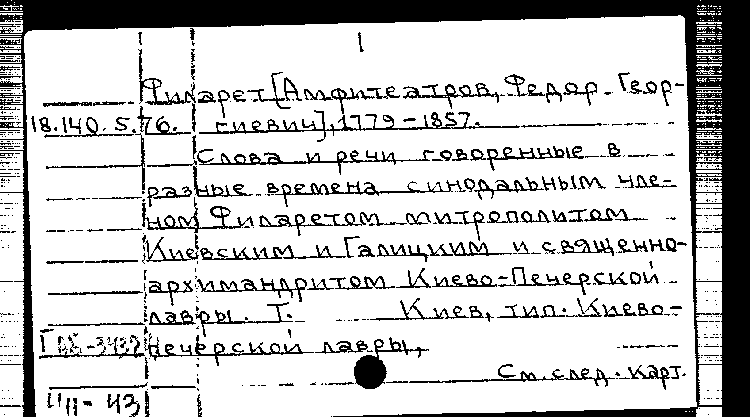 1
Филарет [Амфитеатров, Федор Геор-
18.140.5.76. гиевич], 1779-1857.
Слова и речи говоренные в
разные времена синодальным чле-
ном Филаретом митрополитом
Киевским и Галицким и священно-
архимандритом Киево-Печерской
лавры. Т. Киев, тип. Киево-
Печерской лавры,
См. след. карт.